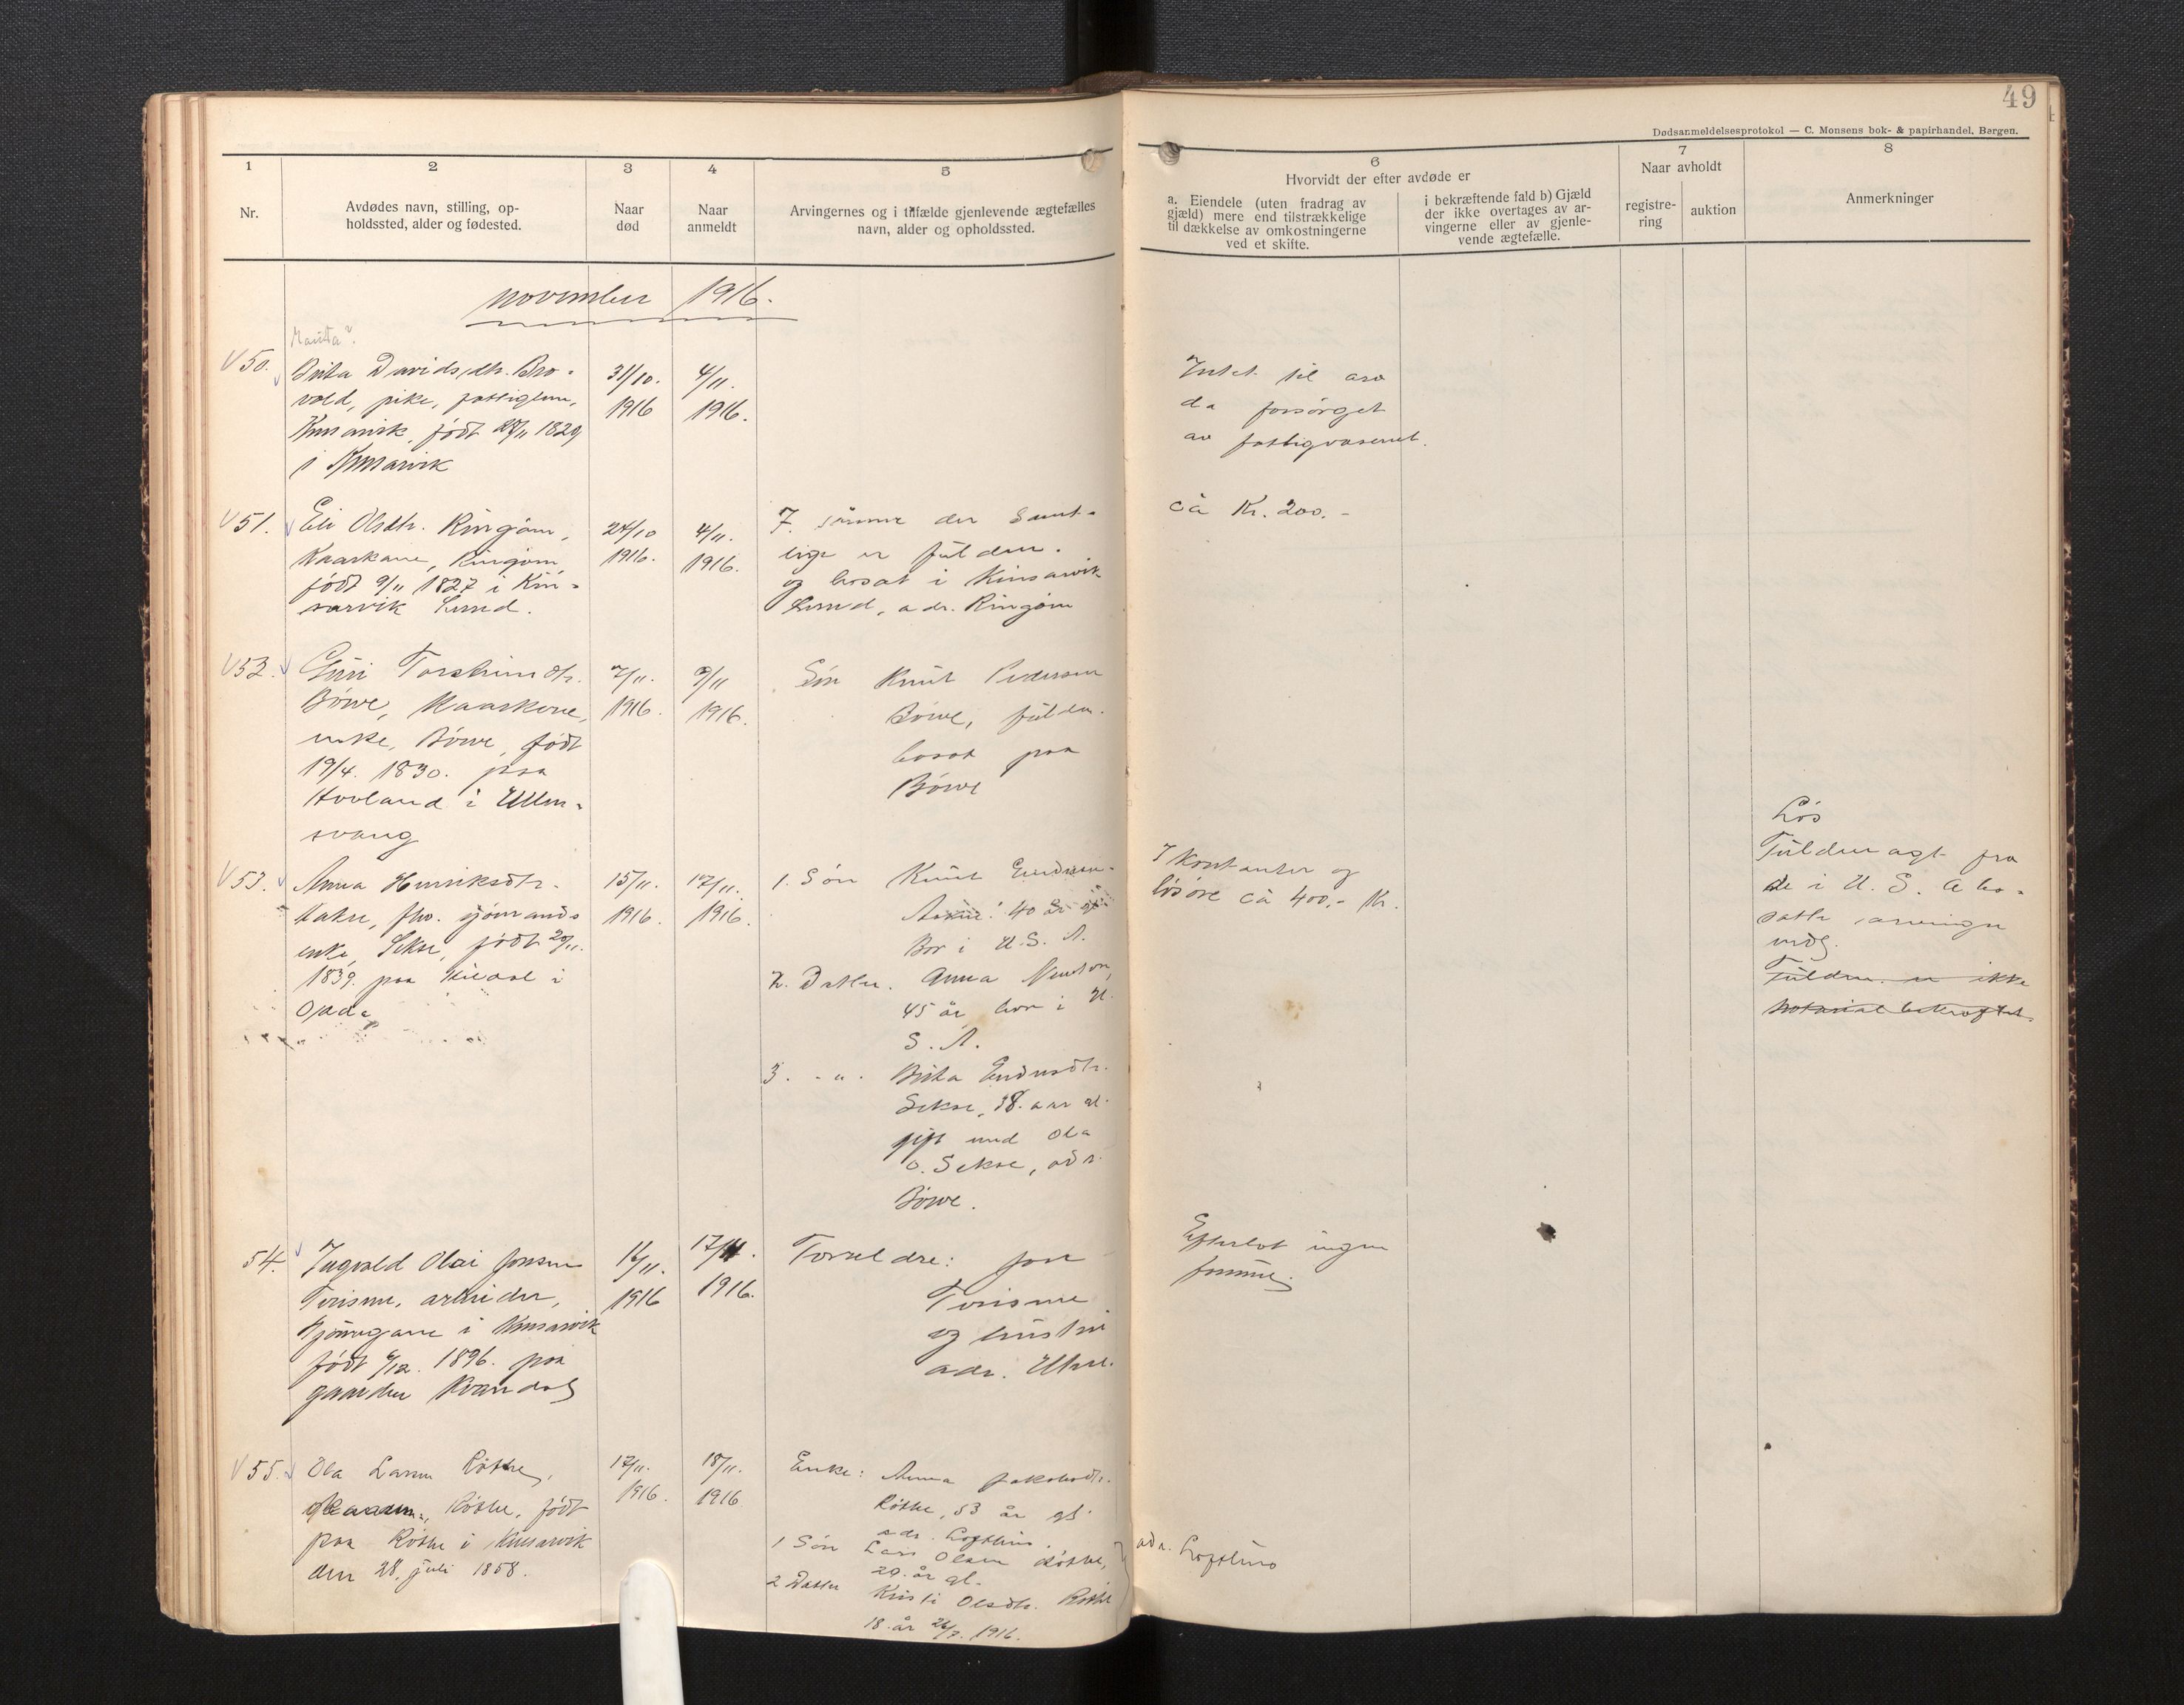 49
Dødsanmeldelsesprotokol — C. Monsens bok- & papirhandel, Bergen.
1
Nr.
2
Avdødes navn, stilling, op-
holdssted, alder og fødested.
3
Naar
død
4
Naar
anmeldt
5
Arvingernes og i tilfælde gjenlevende ægtefælles
navn, alder og opholdssted.
6
Hvorvidt der efter avdøde er
a. Eiendele (uten fradrag av
gjæld) mere end tilstrækkelige
til dækkelse av omkostningerne
ved et skifte.
i bekræftende fald b) Gjæld
der ikke overtages av ar-
vingerne eller av gjenle-
vende ægtefælle.
7
Naar avholdt
registre-
ring
auktion
8
Anmerkninger
november 1916.
V 50.
Brita Davidsdtr. Bro-
vold, pike, fattiglem,
Kinsarvik, født 1829
i Kinsarvik
31/10.
1916
4/11.
1916.
Intet til arv
da forsørget
av fattigvæsenet.
V 51.
Eli Olsdtr. Ringøm,
Kaarkone, Ringøm,
født 9/11 1827 i Kin-
sarvik Sund.
24/10
1916.
4/11.
1916.
7. sønner der samt-
lige er fuldm.
og bosat i Kinsarvik
Sund, adr. Ringøm
ca Kr. 200.-
V 52.
Guri Torsteinsdtr.
Børve, Kaarkone,
enke, Børve, født
19/4. 1830. paa
Hovland i Ullen-
svang
7/11.
1916.
9/11
1916.
Søn Knut Pedersen
Børve, fuldm.
bosat paa
Børve
V 53.
Anna Henriksdtr.
fhv. sjømands
enke, Sekse, født 20/11.
1839. paa i
Odda
15/11.
1916.
17/11.
1916.
1. Søn Knut Endresen
40 år gl
Bor i U.S.A.
2. Datter. Anna
45 år bor i U.
S.A.
3. - " - Brita Endresdtr.
Sekse, 38. aar gl.
gift med Ola
O. Sekse, adr.
Børve.
I kontanter og
løsøre ca 400,- Kr.
Løs
Fuldmagt fra
de i U.S.A bo-
satte arvinger
vedl.
Fuldm. er ikke
notarial bekræftet.
54.
Ingvald Olai Jonsen
arbeider,
i Kinsarvik
født 6/12. 1896. paa
gaarden Kvandal
16/11.
1916
17/11.
1916.
Foreldre: Jon
og hustru
adr. Utne.
Efterlot ingen
formue.
V 55.
Ola Larsen Røthe,
Røthe, født
paa Røthe i Kinsarvik
den 28. juli 1858.
17/11.
1916.
18/11.
1916
Enke: Anna Jakobsdtr.
Røthe, 53 år gl.
adr. Lofthus.
1 Søn Lars Olsen Røthe,
20. år gl.
2 Datter Kristi Olsdtr. Røthe
18. år 26/7. 1916.
adr. Lofthus